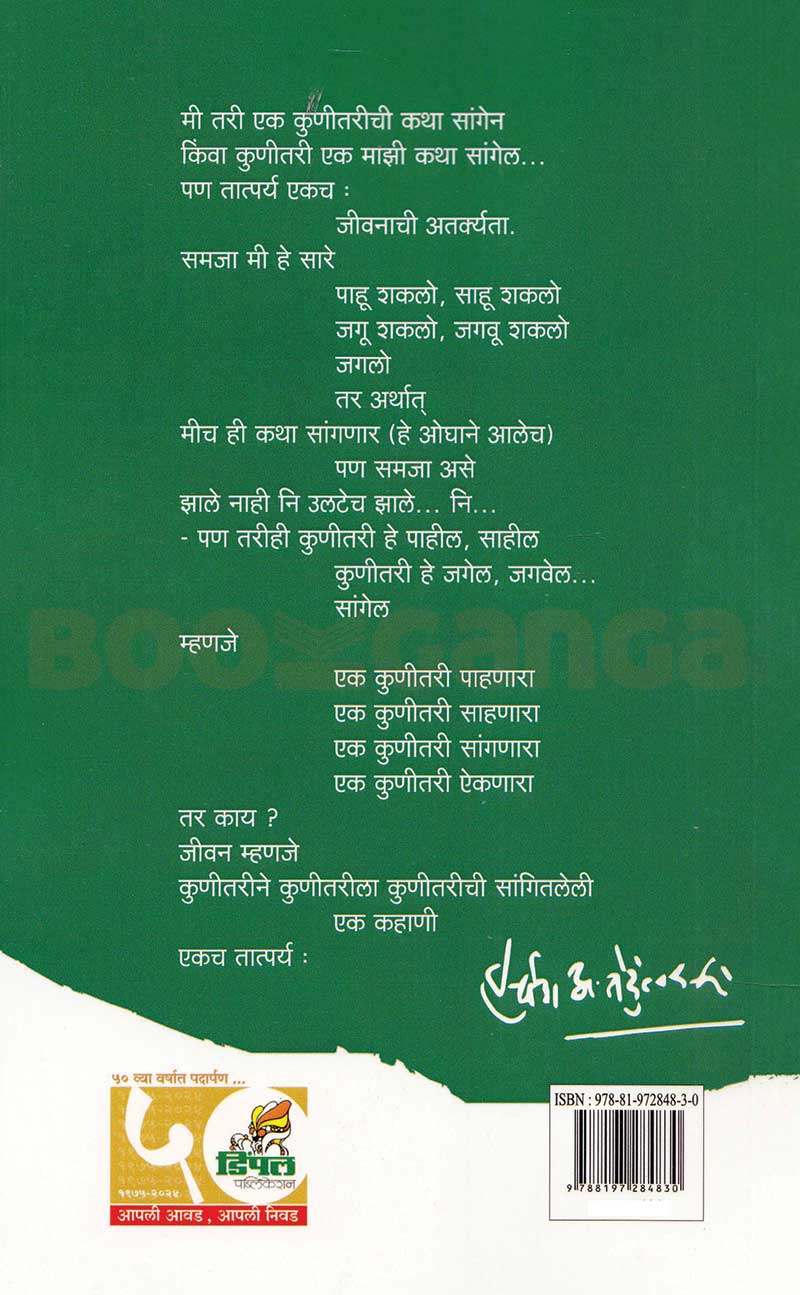 मी तरी एक कुणीतरीची कथा सांगेन
किंवा कुणीतरी एक माझी कथा सांगेल...
पण तात्पर्य एकच :
जीवनाची अतर्क्यता.
समजा मी हे सारे
पाहू शकलो, साहू शकलो
जगू शकलो, जगवू शकलो
जगलो
तर अर्थात्
मीच ही कथा सांगणार (हे ओघाने आलेच)
पण समजा असे
झाले नाही नि उलटेच झाले... नि...
- पण तरीही कुणीतरी हे पाहील, साहील
कुणीतरी हे जगेल, जगवेल...
सांगेल
BOOKGANGA
म्हणजे
एक कुणीतरी पाहणारा
एक कुणीतरी साहणारा
एक कुणीतरी सांगणारा
एक कुणीतरी ऐकणारा
तर काय ?
जीवन म्हणजे
कुणीतरीने कुणीतरीला कुणीतरीची सांगितलेली
एक कहाणी
एकच तात्पर्य :
५० व्या वर्षात पदार्पण ...
५०
डिंपल
पब्लिकेशन
१९७५-२०२५
आपली आवड , आपली निवड
ISBN : 978-81-972848-3-0
9 788197 284830